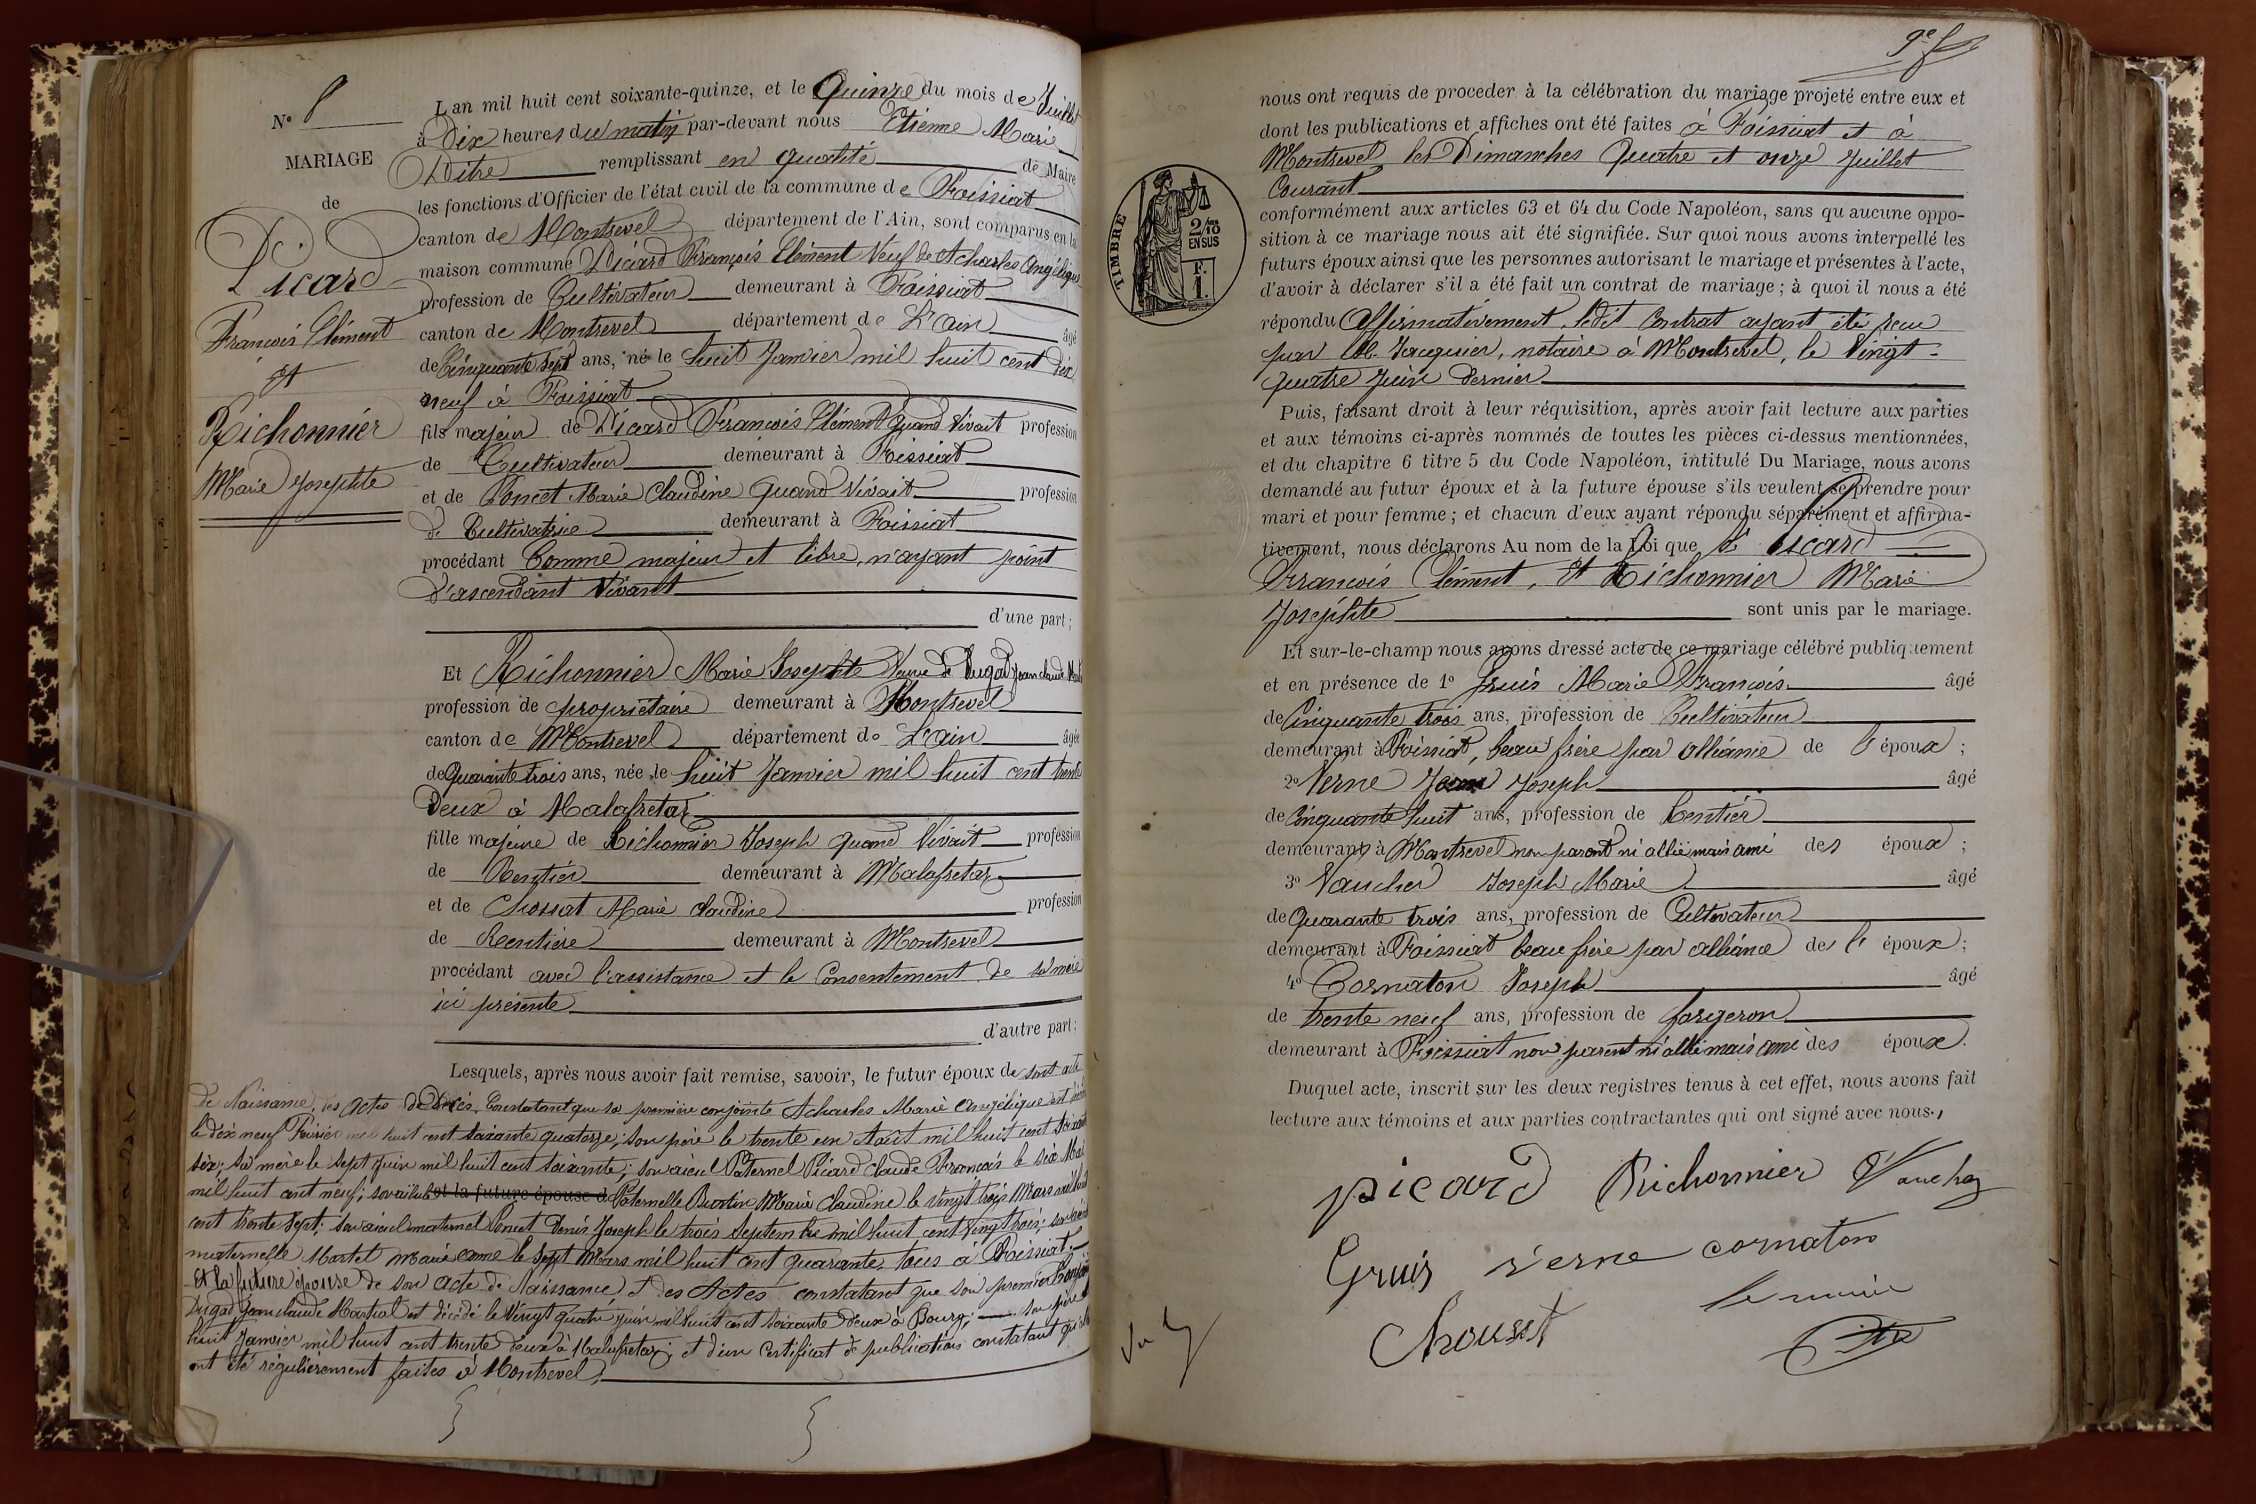 N° 8
MARIAGE
de
Picard
François Clément
et
Richonnier
Marie Josephte
L'an mil huit cent soixante-quinze, et le Quinze du mois de Juillet
à Dix heures du matin par-devant nous Etienne Marie
Ditre remplissant en qualité de Maire
les fonctions d'Officier de l'état civil de la commune de Foissiat
canton de Montrevel département de l'Ain, sont comparus en la
maison commune Picard François Clément Veuf de Acharles Angélique
profession de Cultivateur demeurant à Foissiat
canton de Montrevel département de L'ain âgé
de Cinquante sept ans, né le huit Janvier mil huit cent dix
neuf à Foissiat
fils majeur de Picard François Clément Quand Vivait profession
de Cultivateur demeurant à Foissiat
et de Poncet Marie Claudine Quand Vivait profession
de Cultivatrice demeurant à Foissiat
procédant Comme majeur et libre, n'ayant point
d'ascendant Vivant
d'une part;
Et Richonnier Marie Josephte Veuve de Dugad Jean claude
profession de propriétaire demeurant à Montrevel
canton de Montrevel département de L'ain âgée
de Quarante trois ans, née le huit Janvier mil huit cent trente
Deux à Malafretaz
fille majeure de Richonnier Joseph quand Vivait profession
de Rentier demeurant à Malafretaz
et de Chossat Marie Claudine profession
de Rentière demeurant à Montrevel
procédant avec l'assistance et le Consentement de sa mère
ici présente
d'autre part;
Lesquels, après nous avoir fait remise, savoir, le futur époux de sont acte
de Naissance, des actes de Décès, Constatant que sa première conjointe Acharles Marie Angélique est
le dix neuf Février mil huit cent soixante quatorze; son père le trente un Août mil huit cent
six; sa mère le sept Juin mil huit cent soixante; son aïeul Paternel Picard Claude François le six Mai
mil huit cent neuf; son aïeule et la future épouse d Paternelle Marie Claudine le Vingt trois Mars mil huit
cent trente sept; son aïeul maternel Poncet Denis Joseph le trois septembre mil huit cent vingt trois; son
maternelle Martel Marie anne le Sept Mars mil huit cent quarante tous à Foissiat.
Et la future épouse de son acte de Naissance, et des Actes constatant que son premier Conjoint
Dugad Jean claude Martial est décédé le Vingt quatre juin mil huit cent soixante deux à Bourg; son père
huit Janvier mil huit cent trente deux à Malafretaz; et d'un Certificat de publications constatant qu'
ont été régulièrement faites à Montrevel.
9e f
nous ont requis de proceder à la célébration du mariage projeté entre eux et
dont les publications et affiches ont été faites à Foissiat et à
Montrevel les Dimanches Quatre et onze Juillet
Courant
TIMBRE
2/10
EN SUS
F.
1.
conformément aux articles 63 et 64 du Code Napoléon, sans qu aucune oppo-
sition à ce mariage nous ait été signifiée. Sur quoi nous avons interpellé les
futurs époux ainsi que les personnes autorisant le mariage et présentes à l'acte,
d'avoir à déclarer s'il a été fait un contrat de mariage; à quoi il nous a été
répondu affirmativement, ledit Contrat ayant été reçu
par M. Jacquier, notaire à Montrevel, le Vingt-
quatre Juin dernier
Puis, faisant droit à leur réquisition, après avoir fait lecture aux parties
et aux témoins ci-après nommés de toutes les pièces ci-dessus mentionnées,
et du chapitre 6 titre 5 du Code Napoléon, intitulé Du Mariage, nous avons
demandé au futur époux et à la future épouse s'ils veulent se prendre pour
mari et pour femme; et chacun d'eux ayant répondu séparément et affirma-
tivement, nous déclarons Au nom de la Loi que Picard
François Clément, Et Richonnier Marie
Josephte sont unis par le mariage.
Et sur-le-champ nous avons dressé acte de ce mariage célébré publiquement
et en présence de 1° Gruis Marie François âgé
de Cinquante trois ans, profession de Cultivateur
demeurant à Foissiat, beau frère par alliance de l'époux;
2° Verne Jean Joseph âgé
de Cinquante huit ans, profession de Rentier
demeurant à Montrevel non parent ni allié mais ami des époux;
3° Vaucher Joseph Marie âgé
de Quarante trois ans, profession de Cultivateur
demeurant à Foissiat beau frère par alliance de l'époux;
4° Cornaton Joseph âgé
de trente neuf ans, profession de forgeron
demeurant à Foissiat non parent ni allié mais ami des époux.
Duquel acte, inscrit sur les deux registres tenus à cet effet, nous avons fait
lecture aux témoins et aux parties contractantes qui ont signé avec nous.
picard Richonnier Vaucher
Gruis verne cornaton
Chossat le maire
Ditre